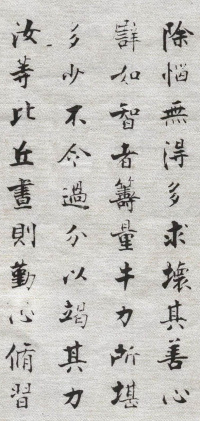 除惱無得多求壞其善心
譬如智者籌量牛力所堪
多少不令過分以竭其力
汝等比丘晝則勤心脩習